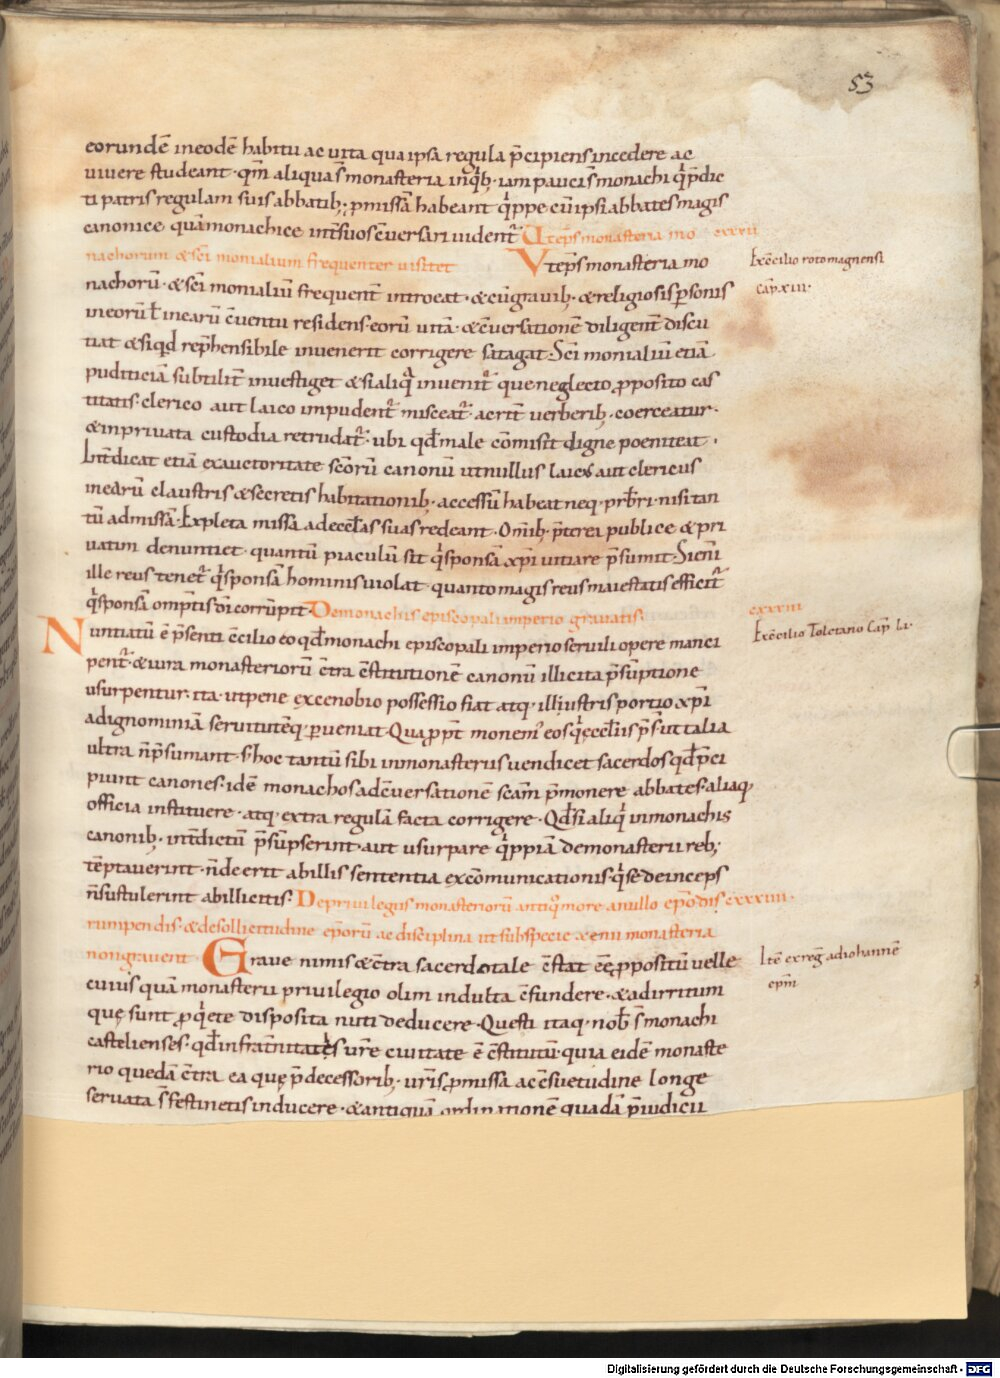 53
eorundē ineodē habitu ac uita qua ipsa regula p̄cipiens incedere ac
uiuere studeant · qm̄ aliqua s̄ monasteria inq'b; iam paucis monachi q' p̄dic
ti patris regulam suis abbatib; pmissā habeant q'ppe cū ipsi abbates magis
canonice quā monachice int̄ suos c̄uersari uident᷑ Ut ep̄s monasteria mo cxxxii
nachorum & sc̄i monialium frequenter uisitet Vt ep̄s monasteria mo
Ex c̄cilio rotomagnensi
nachorū · & sc̄i monialiū frequent̄ introeat · & cū grauib; & religiosis p̄sonis
cap · xiii ·
ineorū ł inearū c̄uentu residens · eorū uitā · & c̄uersationē diligent̄ discu
tiat & siqd rep̄hensibile inuenerit corrigere satagat · Sc̄i monialiū etiā
pudiciciā subtilit̄ inuestiget & si aliq' inuenit᷑ que neglecto p̄posito cas
titatis · clerico aut laico impudent᷑ misceat᷑ · acrit̄ uerberib; coerceatur ·
& inpriuata custodia retrudat᷑ · ubi qd̄ male cōmisit digne poeniteat ·
Int̄dicat etiā ex auctoritate sc̄orū canonū ut nullus laicus aut clericus
inearū claustris & secretis habitationib; accessū habeat neq; prb̄ri · nisi tan
tū ad missā · Expleta missa ad ecclas̄ suas redeant · Omib; p̄terea publice & pri
uatim denuntiet · quantū piaculū sit q' sponsā xp̄i uitiare p̄sumit · Si eni
ille reus tenet᷑ q' sponsā hominis uiolat · quanto magis reus maiestatis efficit᷑
q' sponsā omp̄tis dī corrūpit · De monachis episcopali imperio grauatis · cxxxiii
Nuntiatū ē p̄senti c̄cilio eo qd̄ monachi episcopali imperio seruili opere manci
Ex c̄cilio Toletano Cap̄ · li ·
pent᷑ · & iura monasteriorū c̄tra c̄stitutionē canonū illicita p̄sūptione
usurpentur · ita · ut pene ex cenobio possessio fiat atq; illustris portio xp̄i
ad ignominiā seruitutēq; p̄ueniat · Qua ppt̄ monem᷑ eos q' ecclīis p̄s · ut talia
ultra n̄ p̄sumant · s; hoc tantū sibi inmonasteriis uendicet sacerdos qd̄ p̄ci
piunt canones · idē monachos ad c̄uersationē sc̄am p̄monere abbates · aliaq;
officia instituere · atq; extra regulā facta corrigere · Qd̄ si aliq' inmonachis
canonib; int̄dictū p̄sūpserint · aut usurpare q'ppiā de monasterii reb;
tēptauerint · n̄ deerit ab illis sententia excōmunicationis · q' se deinceps
n̄ sustulerint ab illicitis · De priuilegiis monasteriorū antiq' more a nullo ep̄o dis cxxxiiii ·
rumpendis · & de sollicitudine ep̄orū ac disciplina ut sub specie xenii monasteria
non grauent Graue nimis & c̄tra sacerdotale c̄stat eē p̄positū uelle
Itē ex reḡ ad iohannē
cuius quā monasterii priuilegio olim indulta c̄fundere · & adirritum
ep̄m
quę sunt p q'ete disposita niti deducere · Questi itaq; nob̄ s̄ monachi
castelienses · qd̄ in frat̄nitates ur̄e ciuitate ē c̄stitutū · quia eidē monaste
rio quedā c̄tra ea quę p̄decessorib; ur̄is pmissa ac c̄suetudine longe
seruata s̄ festinetis inducere · & antiquā ordinationē quadā p̄iudicii
Digitalisierung gefördert durch die Deutsche Forschungsgemeinschaft - DFG